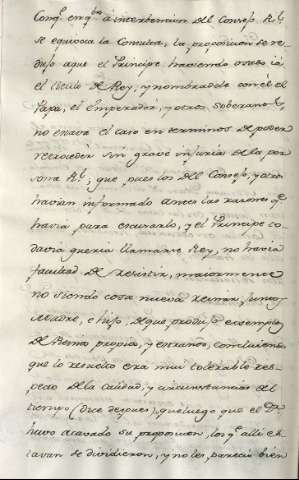 Cong.ⁿ en q.ᵉ à interbencion del Consejo R.ˡ
se equivoca la Consulta, la proposicion se re-
dujo a que el Principe haviendo usado ia
el titulo de Rey, y nombradole con él el
Papa, el Emperador, y otros soberanos,
no estava el caso en terminos de poder
retroceder sin grave injuria de la per-
sona R.ˡ; que pues los del Consejo, y otros
havian informado antes las razones q.ᵉ
havia para escusarlo, y el Principe to-
davia queria llamarse Rey, no havia
facultad de resistir, maiormente
no siendo cosa nueva reinar juntos
Madre, e hijo, de que produjo exemplos
de Reinos propios, y estraños, concluiendo
que lo resuelto era mui tolerable res-
pecto de la calidad, y circunstancias del
tiempo (dice despues), que luego que el
huvo acavado su proposicion, los q.ᵉ alli es-
tavan se dividieron, y no les parecio bien